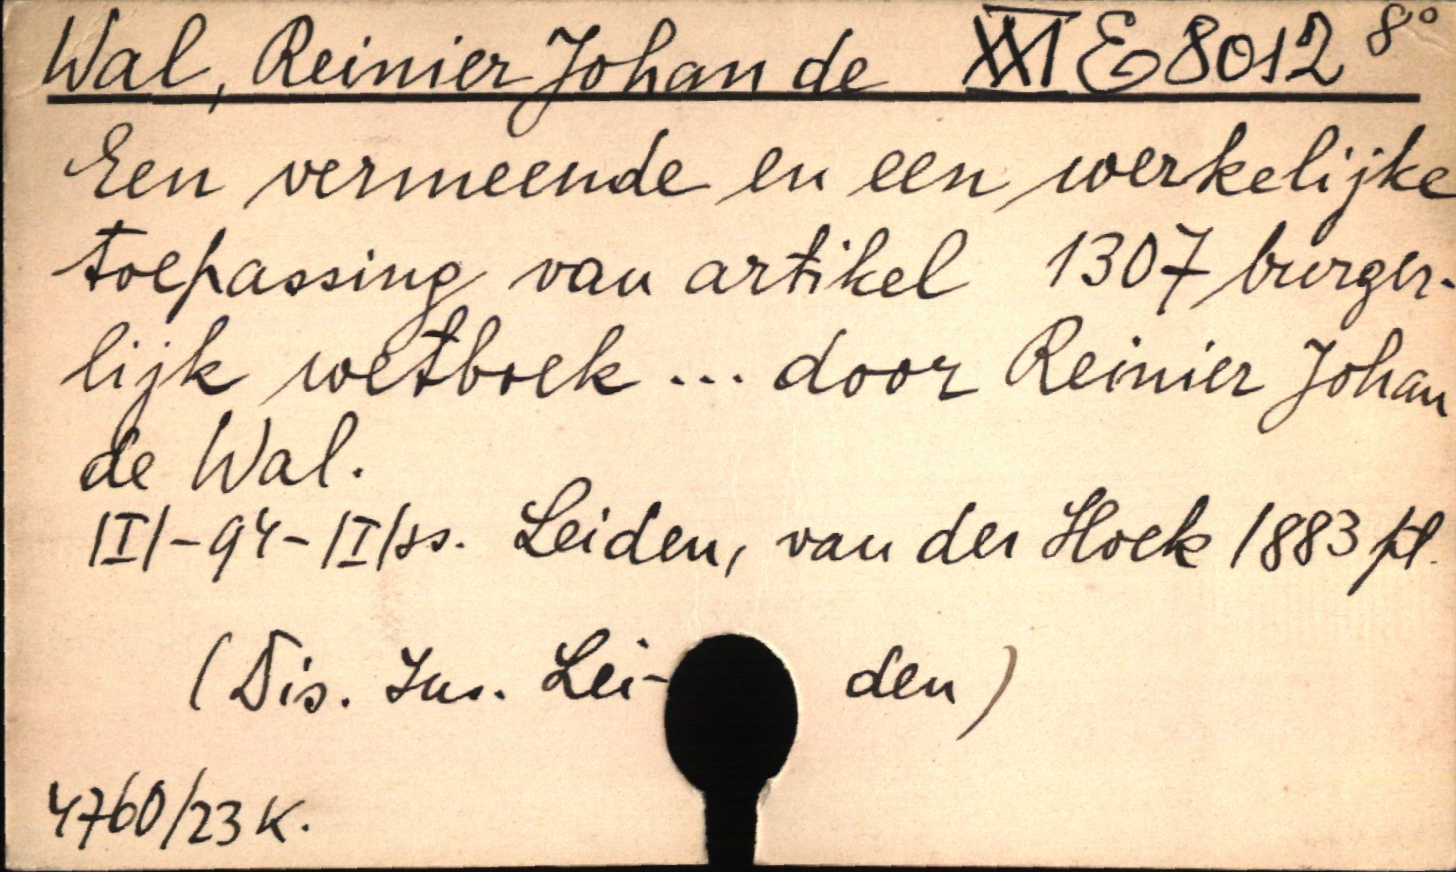 Wal, Reinier Johan de XXI E 8012 8°
Een vermeende en een werkelijke
toepassing van artikel 1307 burger-
lijk wetboek ... door Reinier Johan
de Wal.
|I|-94-|I|ss. Leiden, van der Hoek 1883 pl.
(Dis. Jus. Lei- den)
4760/23 K.